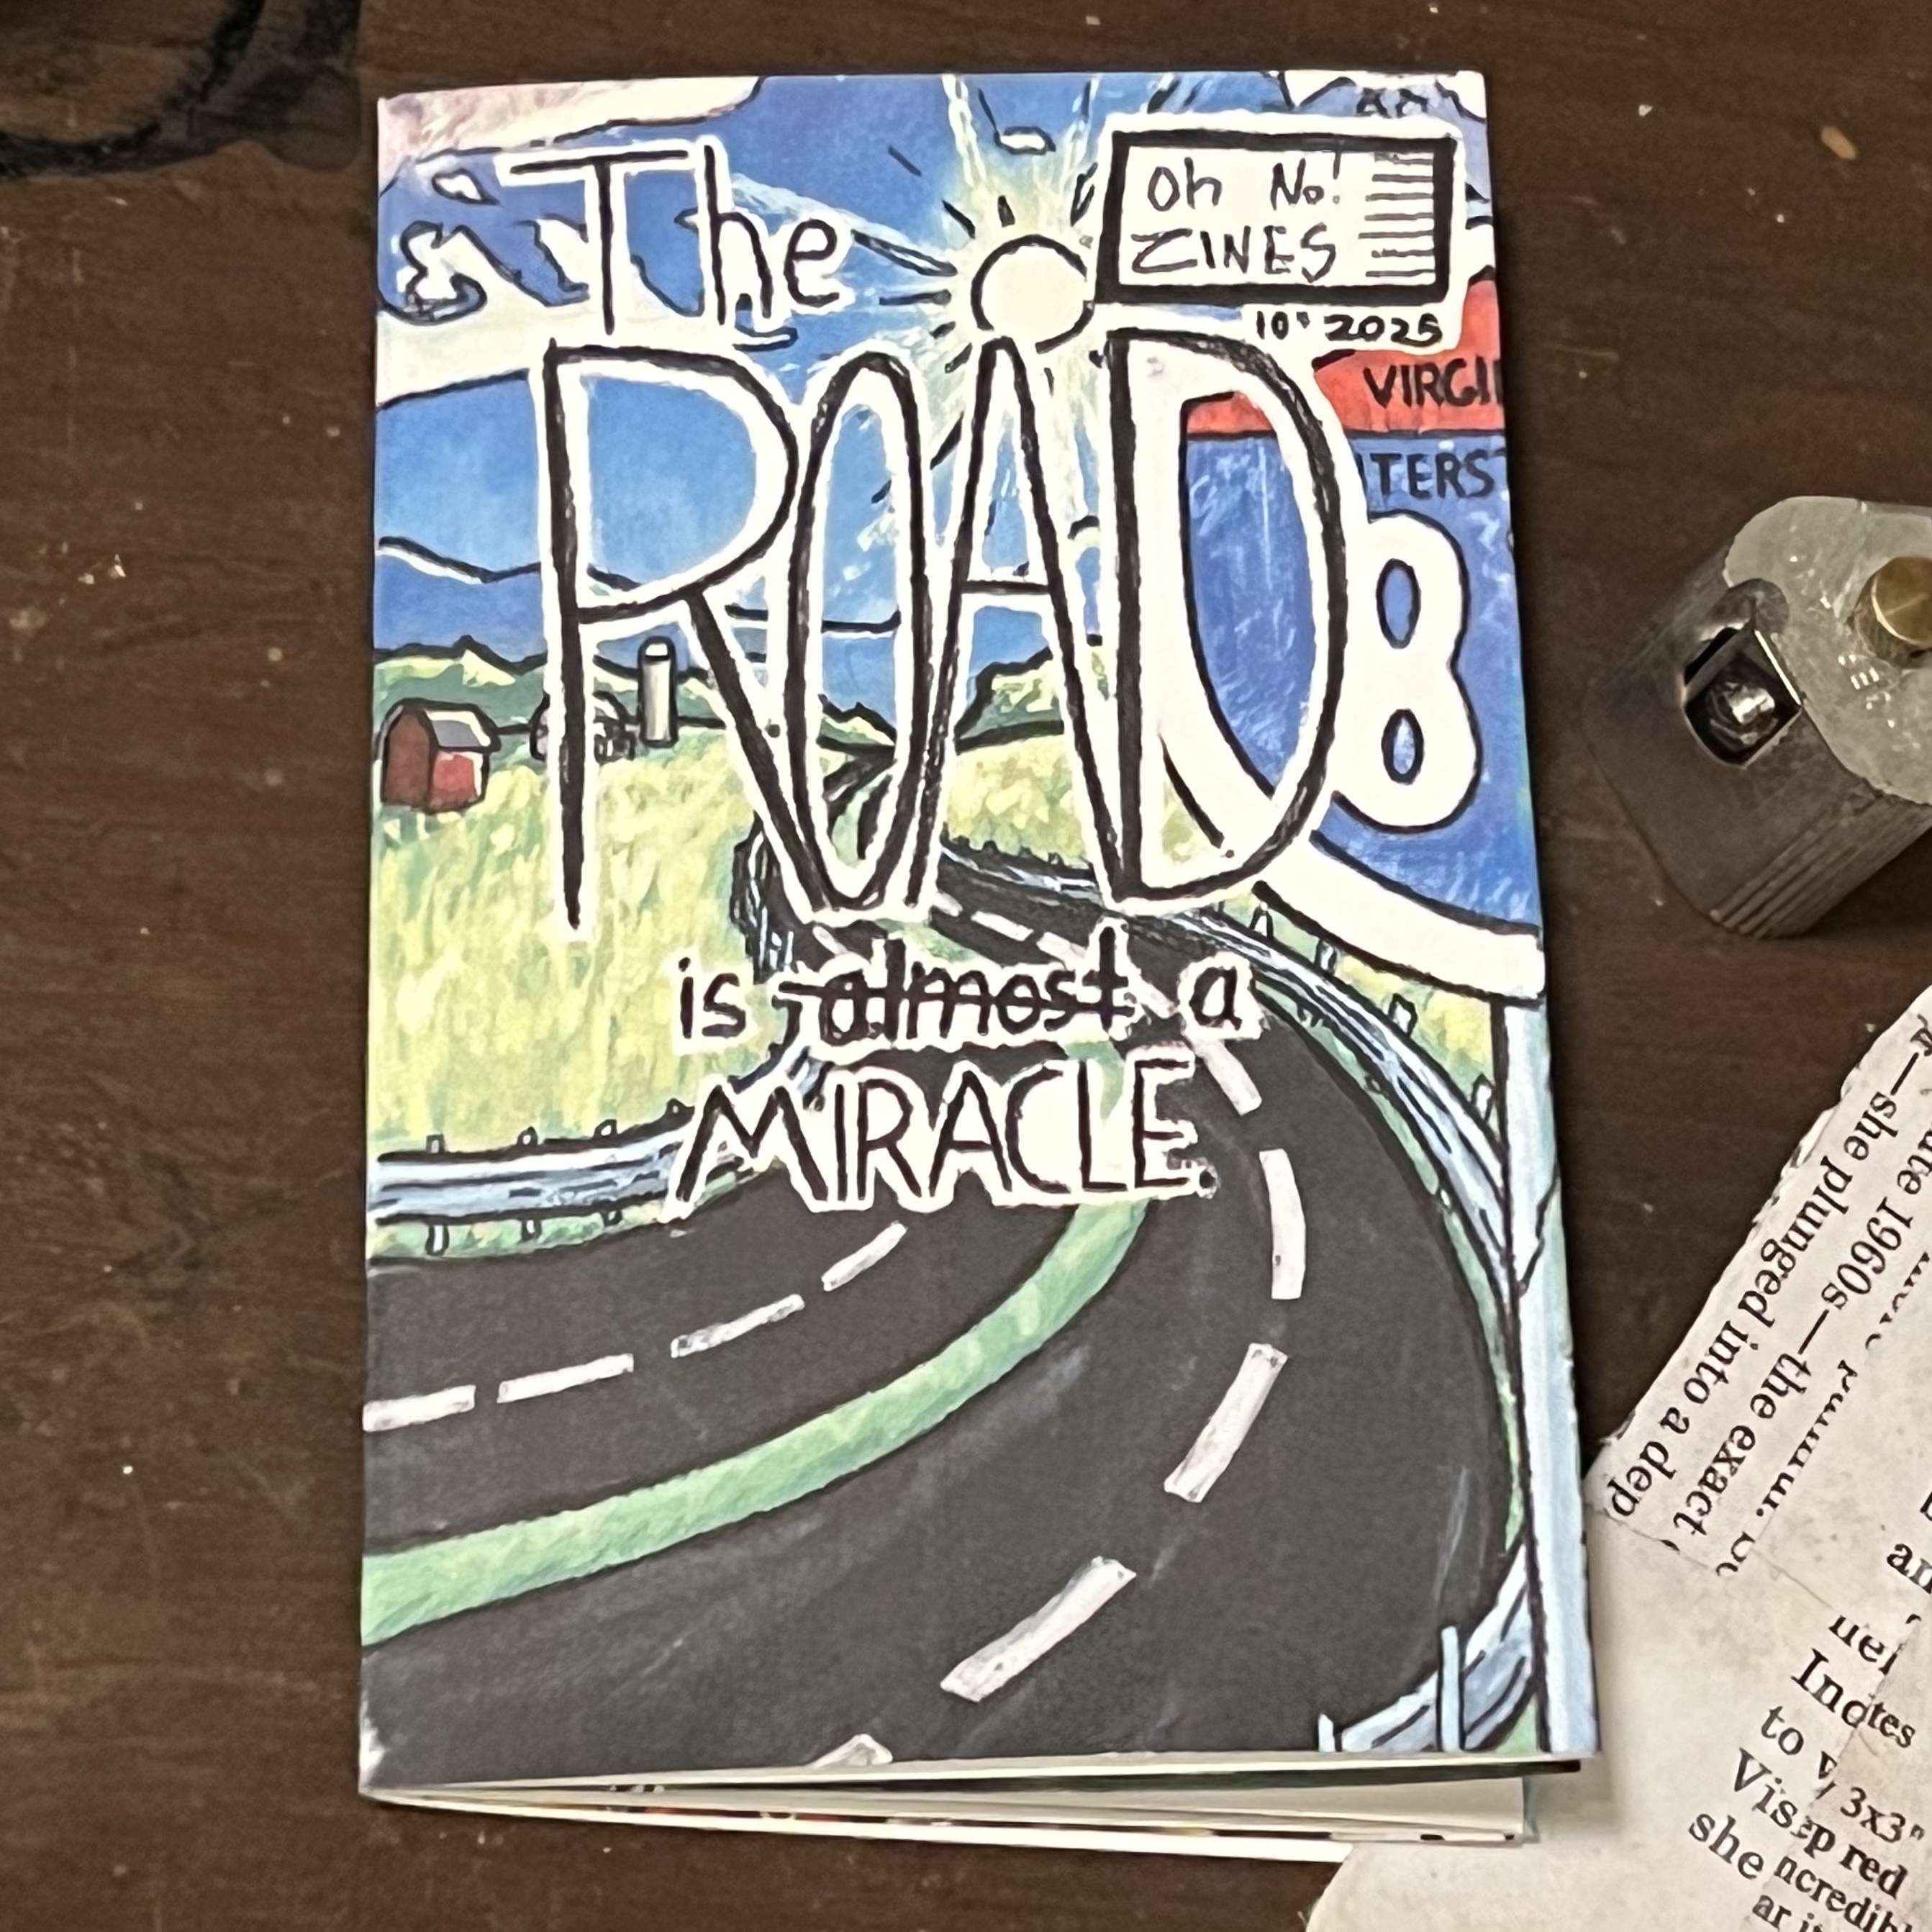 The
Oh No!
ZINES
10• 2025
ROAD
VIRGI
TERST
8
is almost a
MIRACLE.
—she plunged into a dep
1960s—the exact
to
3x3"
she
red